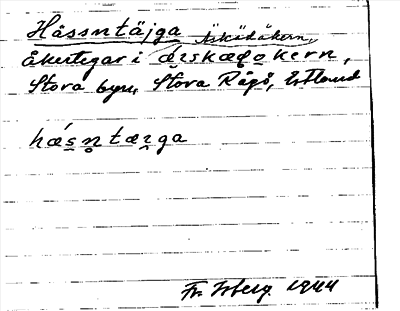 Hässntäjga
Äskädåkern,
åkertegar i ǣɪskædo̥kern,
Stora byn, Stora Rågö, Estland
hǽsn̥tæɪga
Fr. Isberg 1944